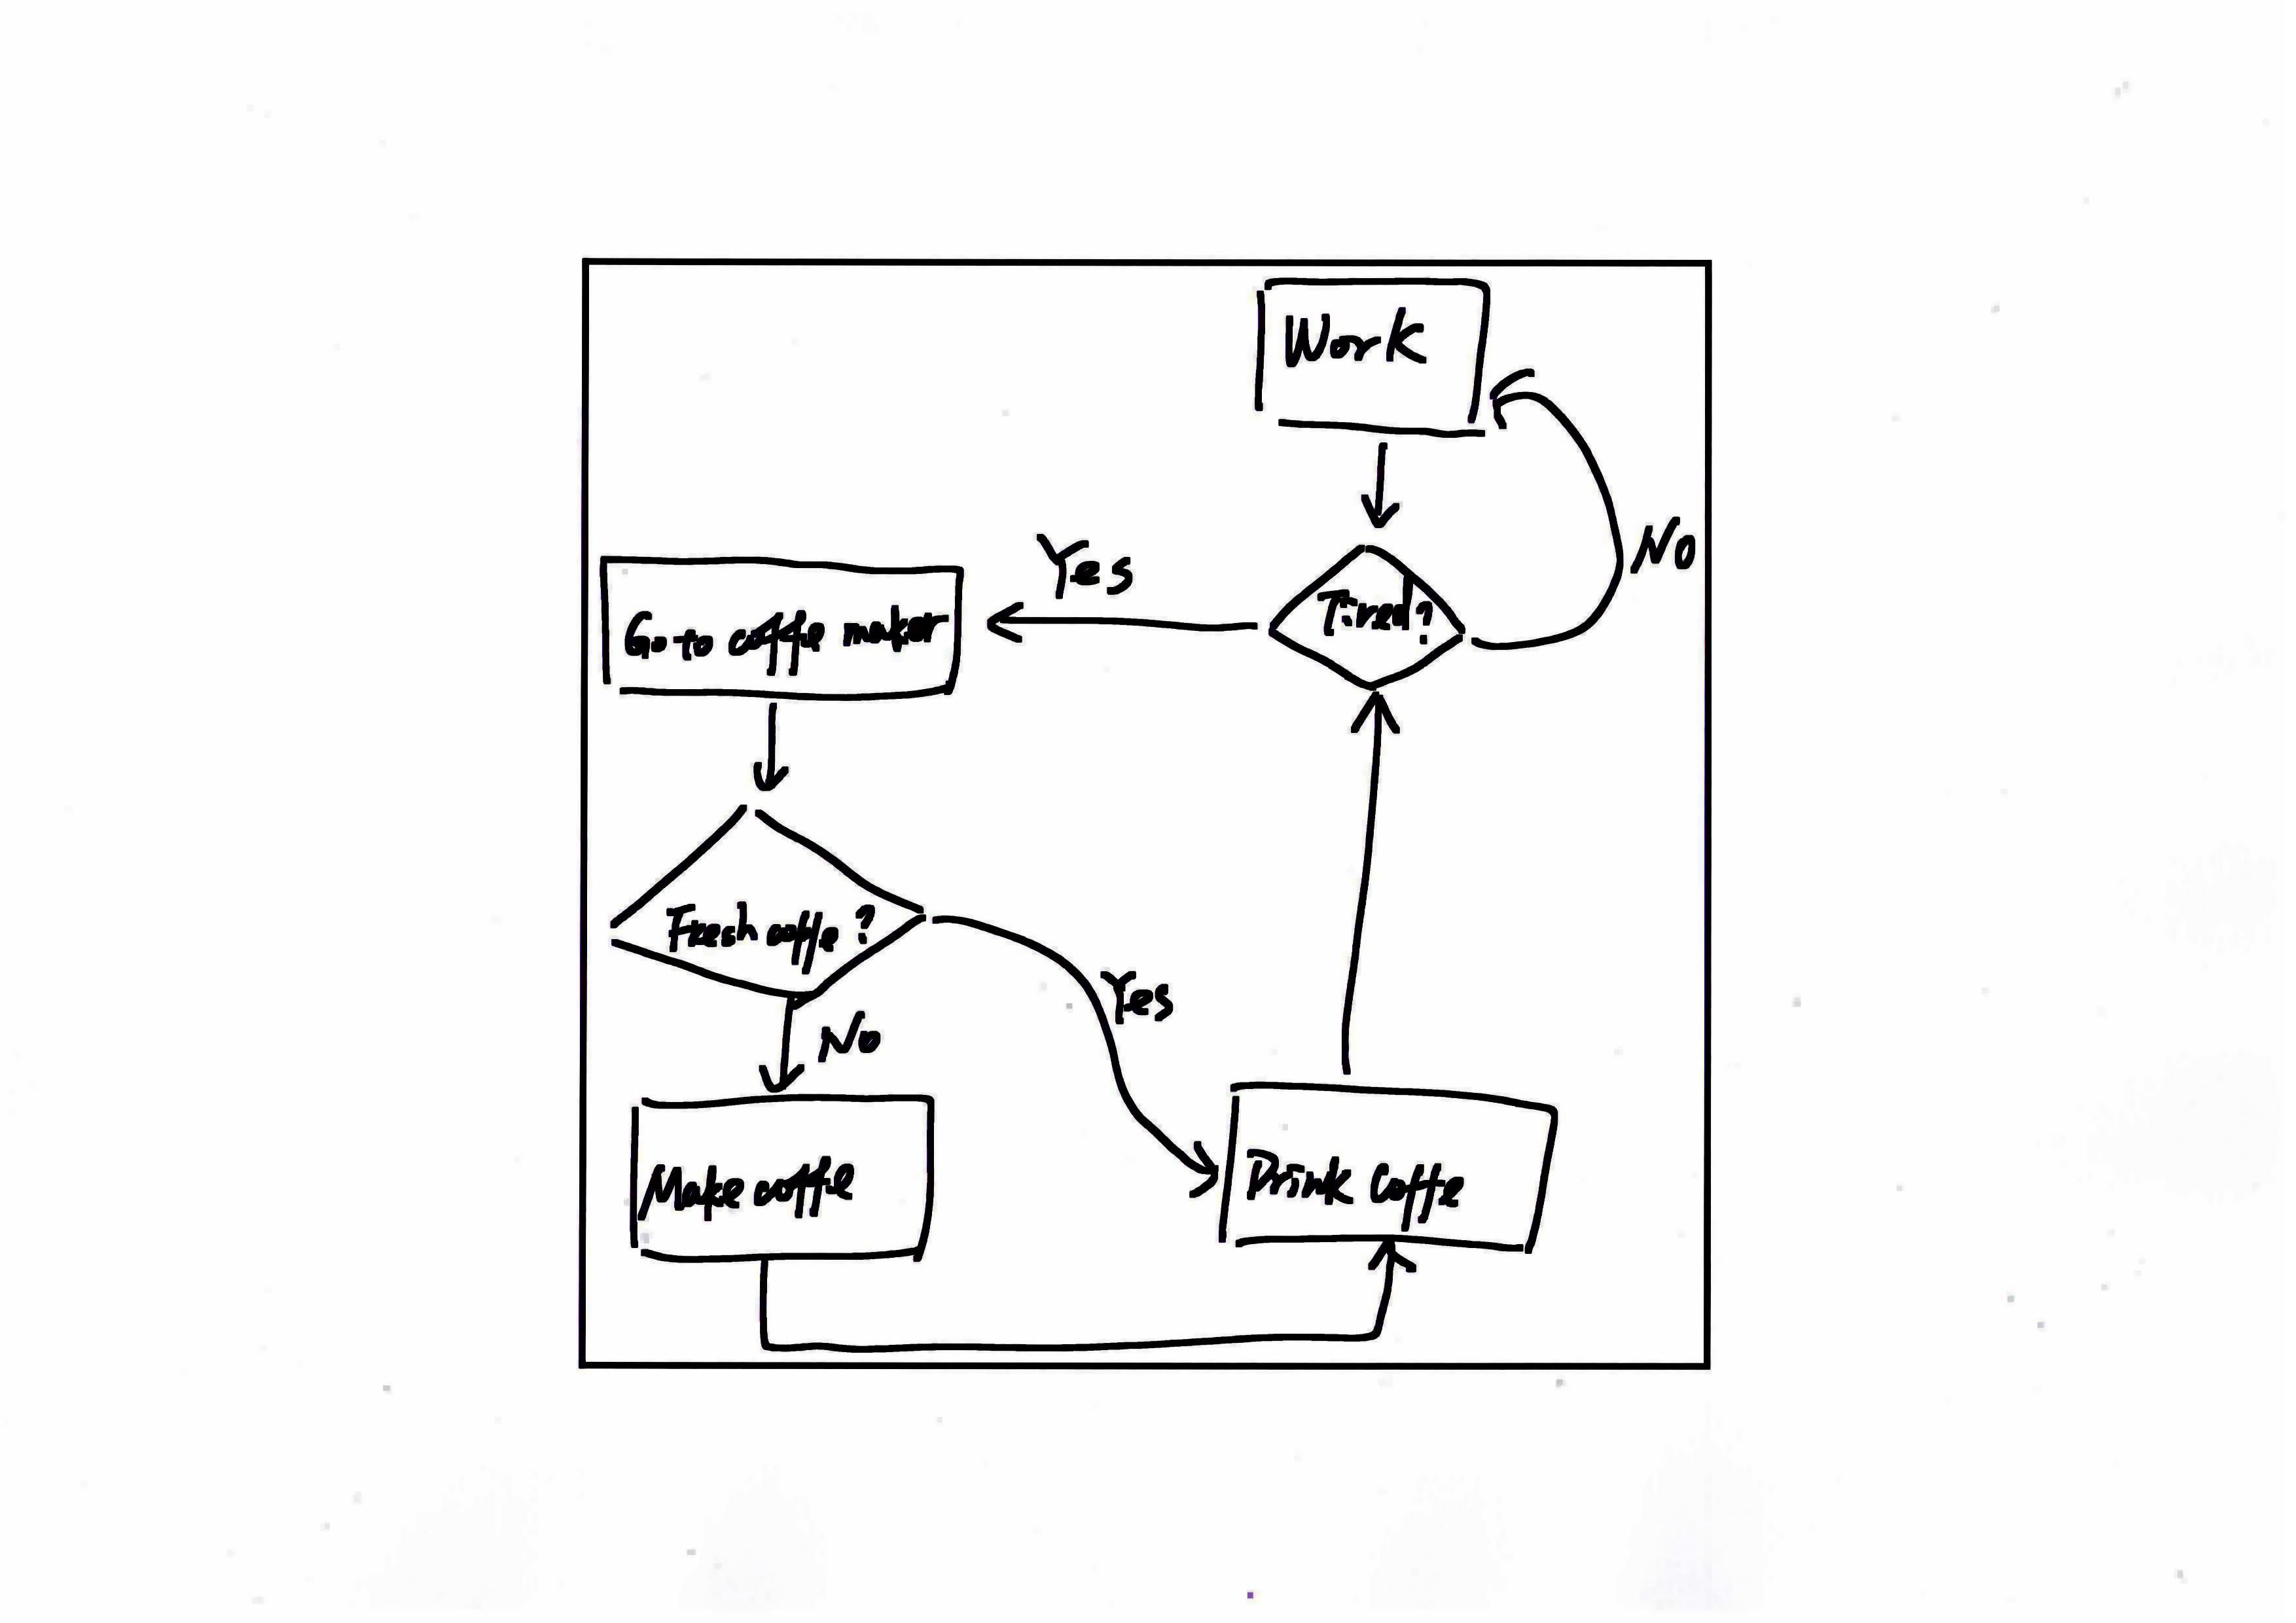 Work
No
Yes
Tired?
Go to coffe maker
Fresh coffe ?
Yes
No
Make coffe
Drink Coffe